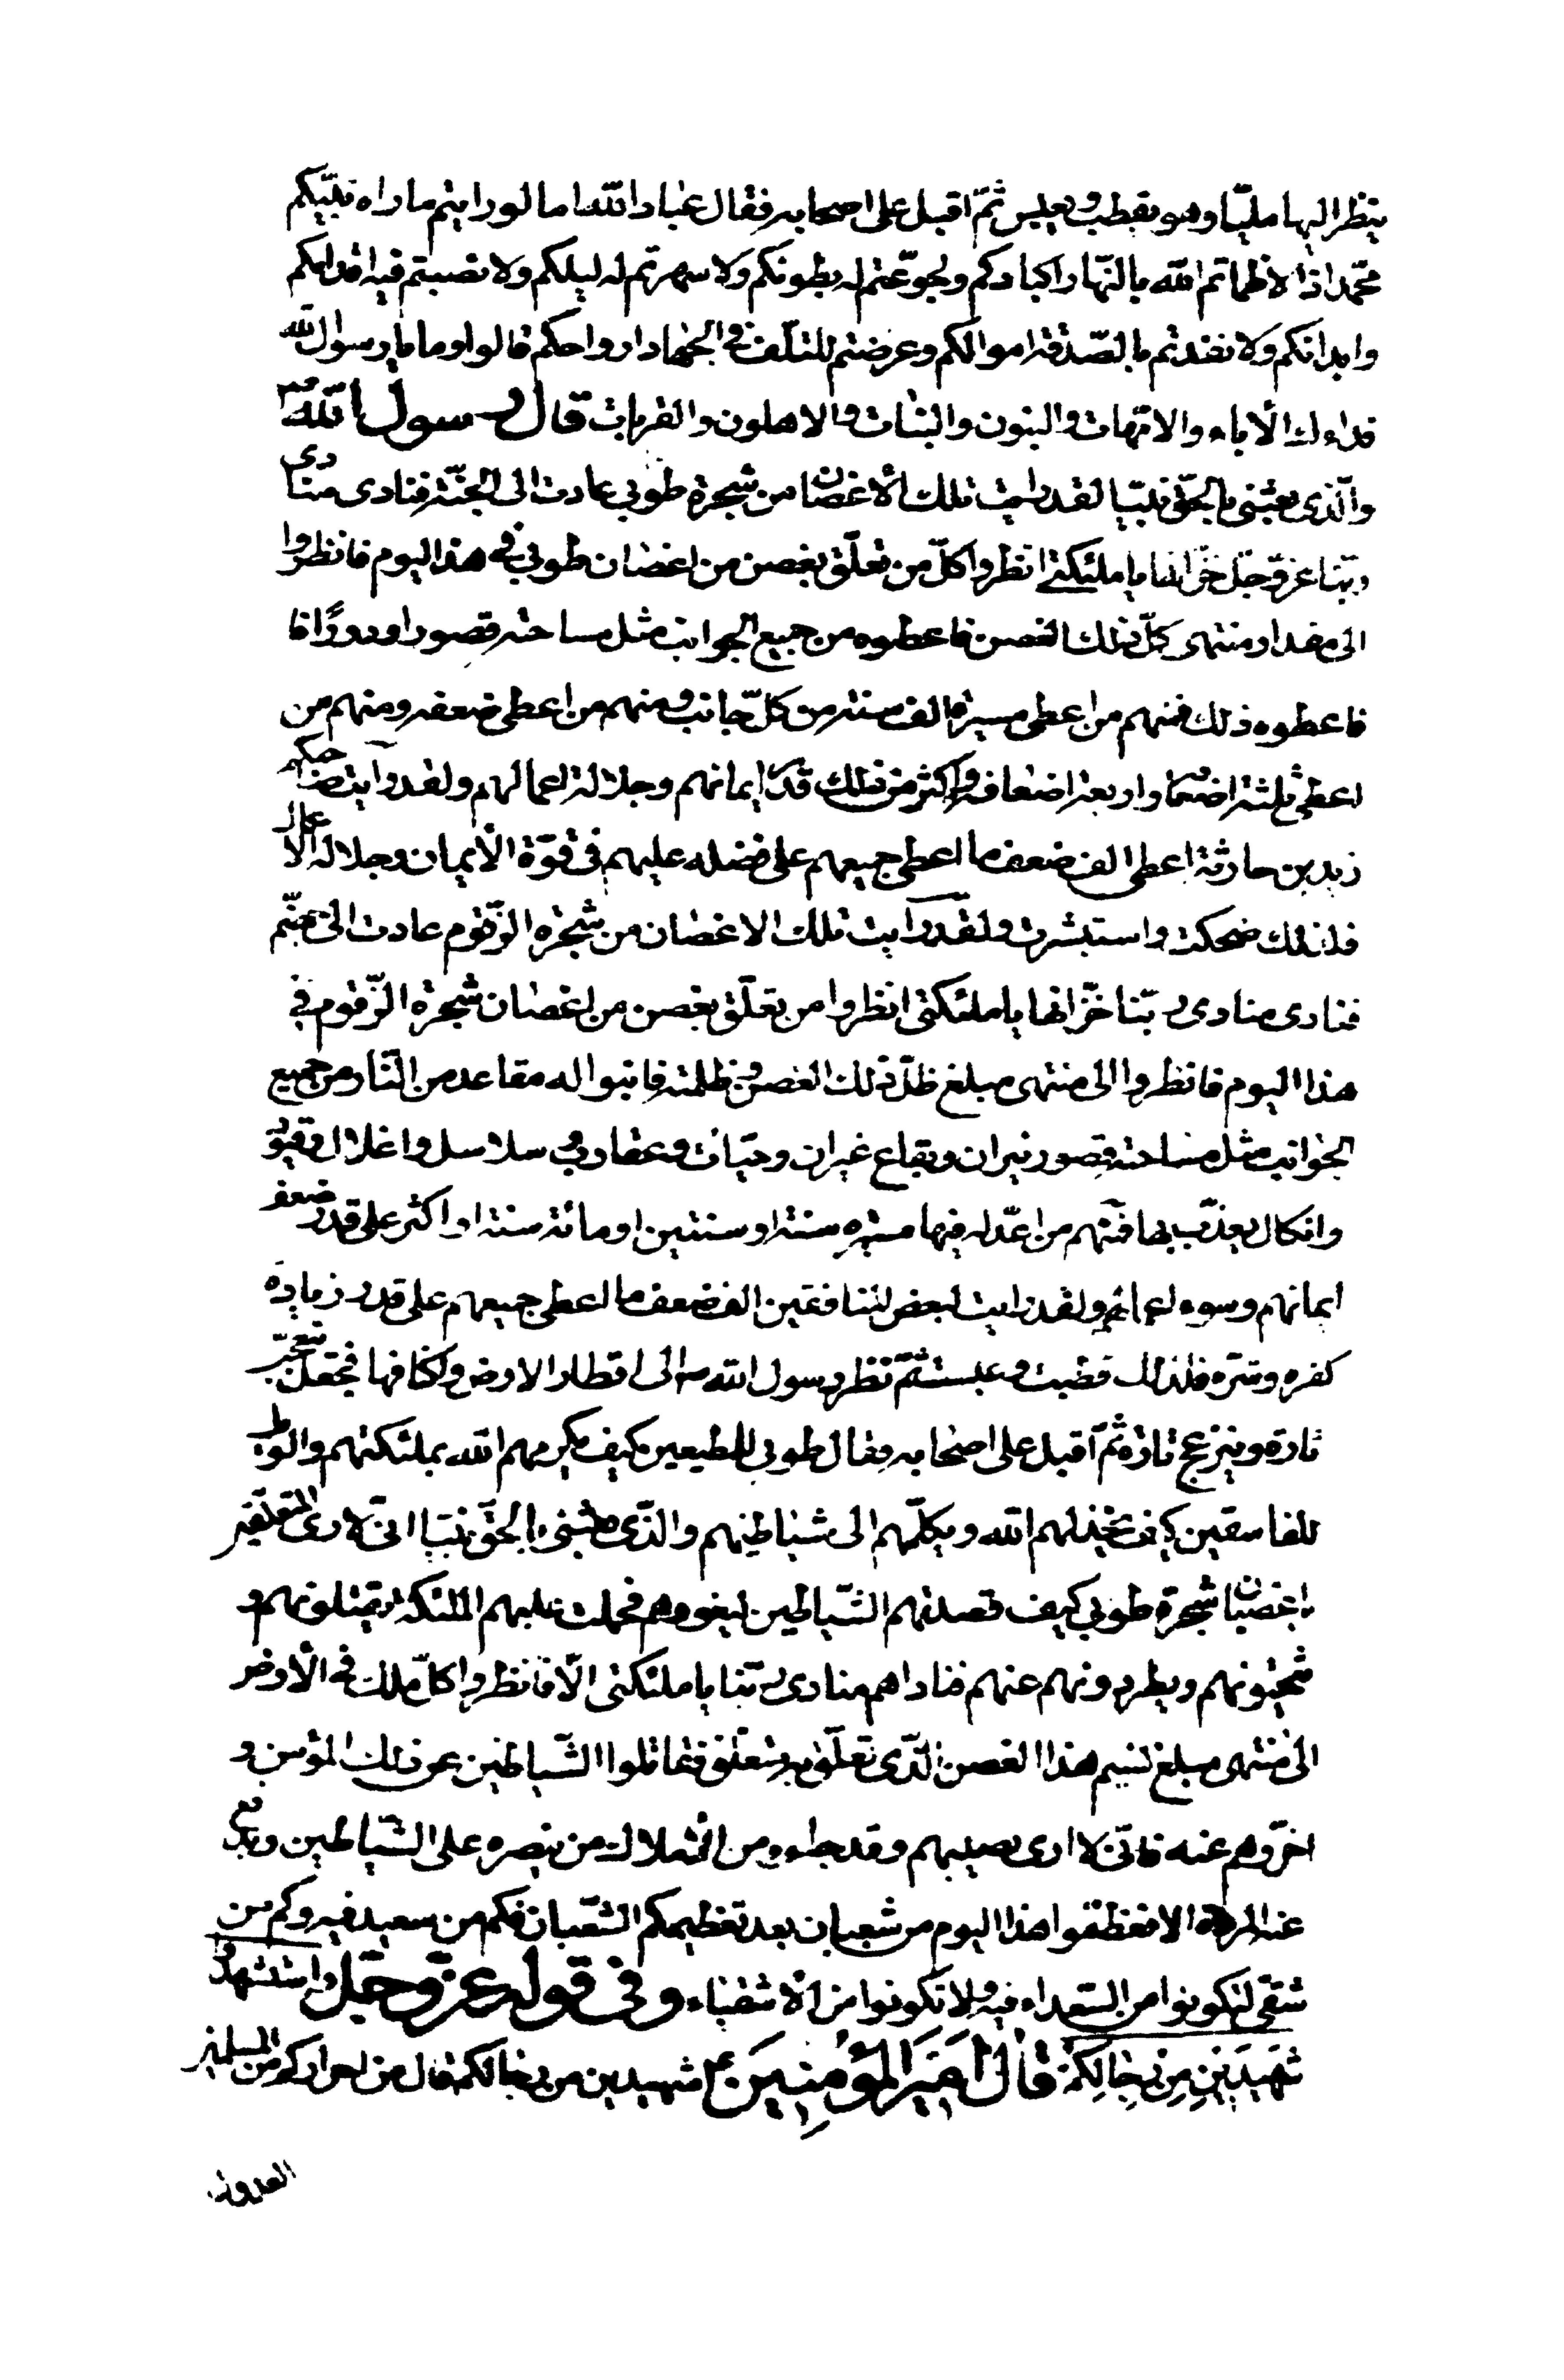 ينظر اليها مليّا وهو يقطب و يعبس ثمّ اقبل على اصحابه فقال عباد الله اما لو رايتم ما راه نبيّكم
محمّد اذا لاظماتم لله بالنّهار اكبادكم ولجوّعتم له بطونكم ولا سهرتم له ليلكم ولانصبتم فيه اقدامكم
وابدانكم ولانفدتم بالصّدقة اموالكم وعرضتم للتلف في الجهاد ارواحكم قالوا وما ما يا رسول الله
فداءك الاباء والامّهات والبنون والبنات والاهلون والقرابات قال رسول الله ص
والّذى بعثنى بالحقّ نبيّا لقد رايت تلك الاغصان من شجرة طوبى عادت الى الجنّة فنادى منادى
ربّنا عزّ وجلّ خزّانها يا ملئكتى انظروا كلّ من تعلّق بغصن من اغصان طوبى في هذا اليوم فانظروا
الى مقدار منتهى كلّ ذلك الغصن فاعطوه من جميع الجوانب مثل مساحته قصورا ودورًا فا
فاعطوه ذلك فمنهم من اعطى مسيرة الف سنة من كلّ جانب ومنهم من اعطى ضعفه ومنهم من
اعطى ثلثة اضعا واربعة اضعافه واكثر من ذلك قدر ايمانهم وجلالة اعمالهم ولقد رايت صاحبكم
زيد بن حارثة اعطى الف ضعف ما اعطى جميعهم على فضله عليهم في قوّة الايمان وجلالة الاعمال
فلذلك ضحكت واستبشرت ولقد رايت تلك الاغصان من شجرة الزّقوم عادت الى جهنّم
فنادى منادى ربّنا خزّانها يا ملئكتى انظروا من تعلّق بغصن من اغصان شجرة الزّقوم في
هذا اليوم فانظروا الى منتهى مبلغ ظلّ ذلك الغصن و ظلمته فابنوا له مقاعد من النّار من جميع
الجوانب مثل مساحته قصور نيران وبقاع غيران وحيّات وعقارب و سلاسل واغلال وقيود
وانكال يعذّب بها فمنهم من اعدّ له فيها مسيرة سنة او سنتين او مائة سنة او اكثر على قدر ضعف
ايمانهم وسوء اعمالهم ولقد رايت لبعض المنافقين الف ضعف ما اعطى جميعهم على قدر زيادة
كفره وشرّه فلذلك قطبت وعبست ثمّ نظر رسول الله ص الى اقطار الارض واكنافها فجعل يتعجّب
تارة وينزعج تارة ثمّ اقبل على اصحابه فقال طوبى للمطيعين كيف يكرمهم الله بملئكتهم والويل
للفاسقين كيف يخذلهم الله ويكلّهم الى شياطينهم والّذى بعثنى بالحقّ نبيّا انّى لارى المتعلّقين
باغصان شجرة طوبى كيف قصدتهم الشّياطين ليغووهم فحملت عليهم الملئكة يقتلونهم و
يثخنونهم ويطردونهم عنهم فناداهم منادى ربّنا يا ملئكتى الا فانظروا كلّ ملك في الارض
الى منتهى مبلغ نسيم هذا الغصن الّذى تعلّق به متعلّق فقاتلوا الشّياطين عن ذلك المؤمن و
اخّروهم عنه فانّى لارى بعضهم وقد جاءه من الاملاك من ينصره على الشّياطين ويدفع
عنه المردة الا فعظّموا هذا اليوم من شعبان بعد تعظيمكم لشعبان فكم من سعيد فيه وكم من
شقى لتكونوا من السّعداء فيه ولا تكونوا من الاشقياء وفى قوله عزّ وجلّ واستشهدوا
شَهِيدَيْنِ مِنْ رِجَالِكُمْ قال اَمِيرَ المُؤْمِنِينَ ع شهيدين من رجالكم قال من احراركم من المسلمين
العدول